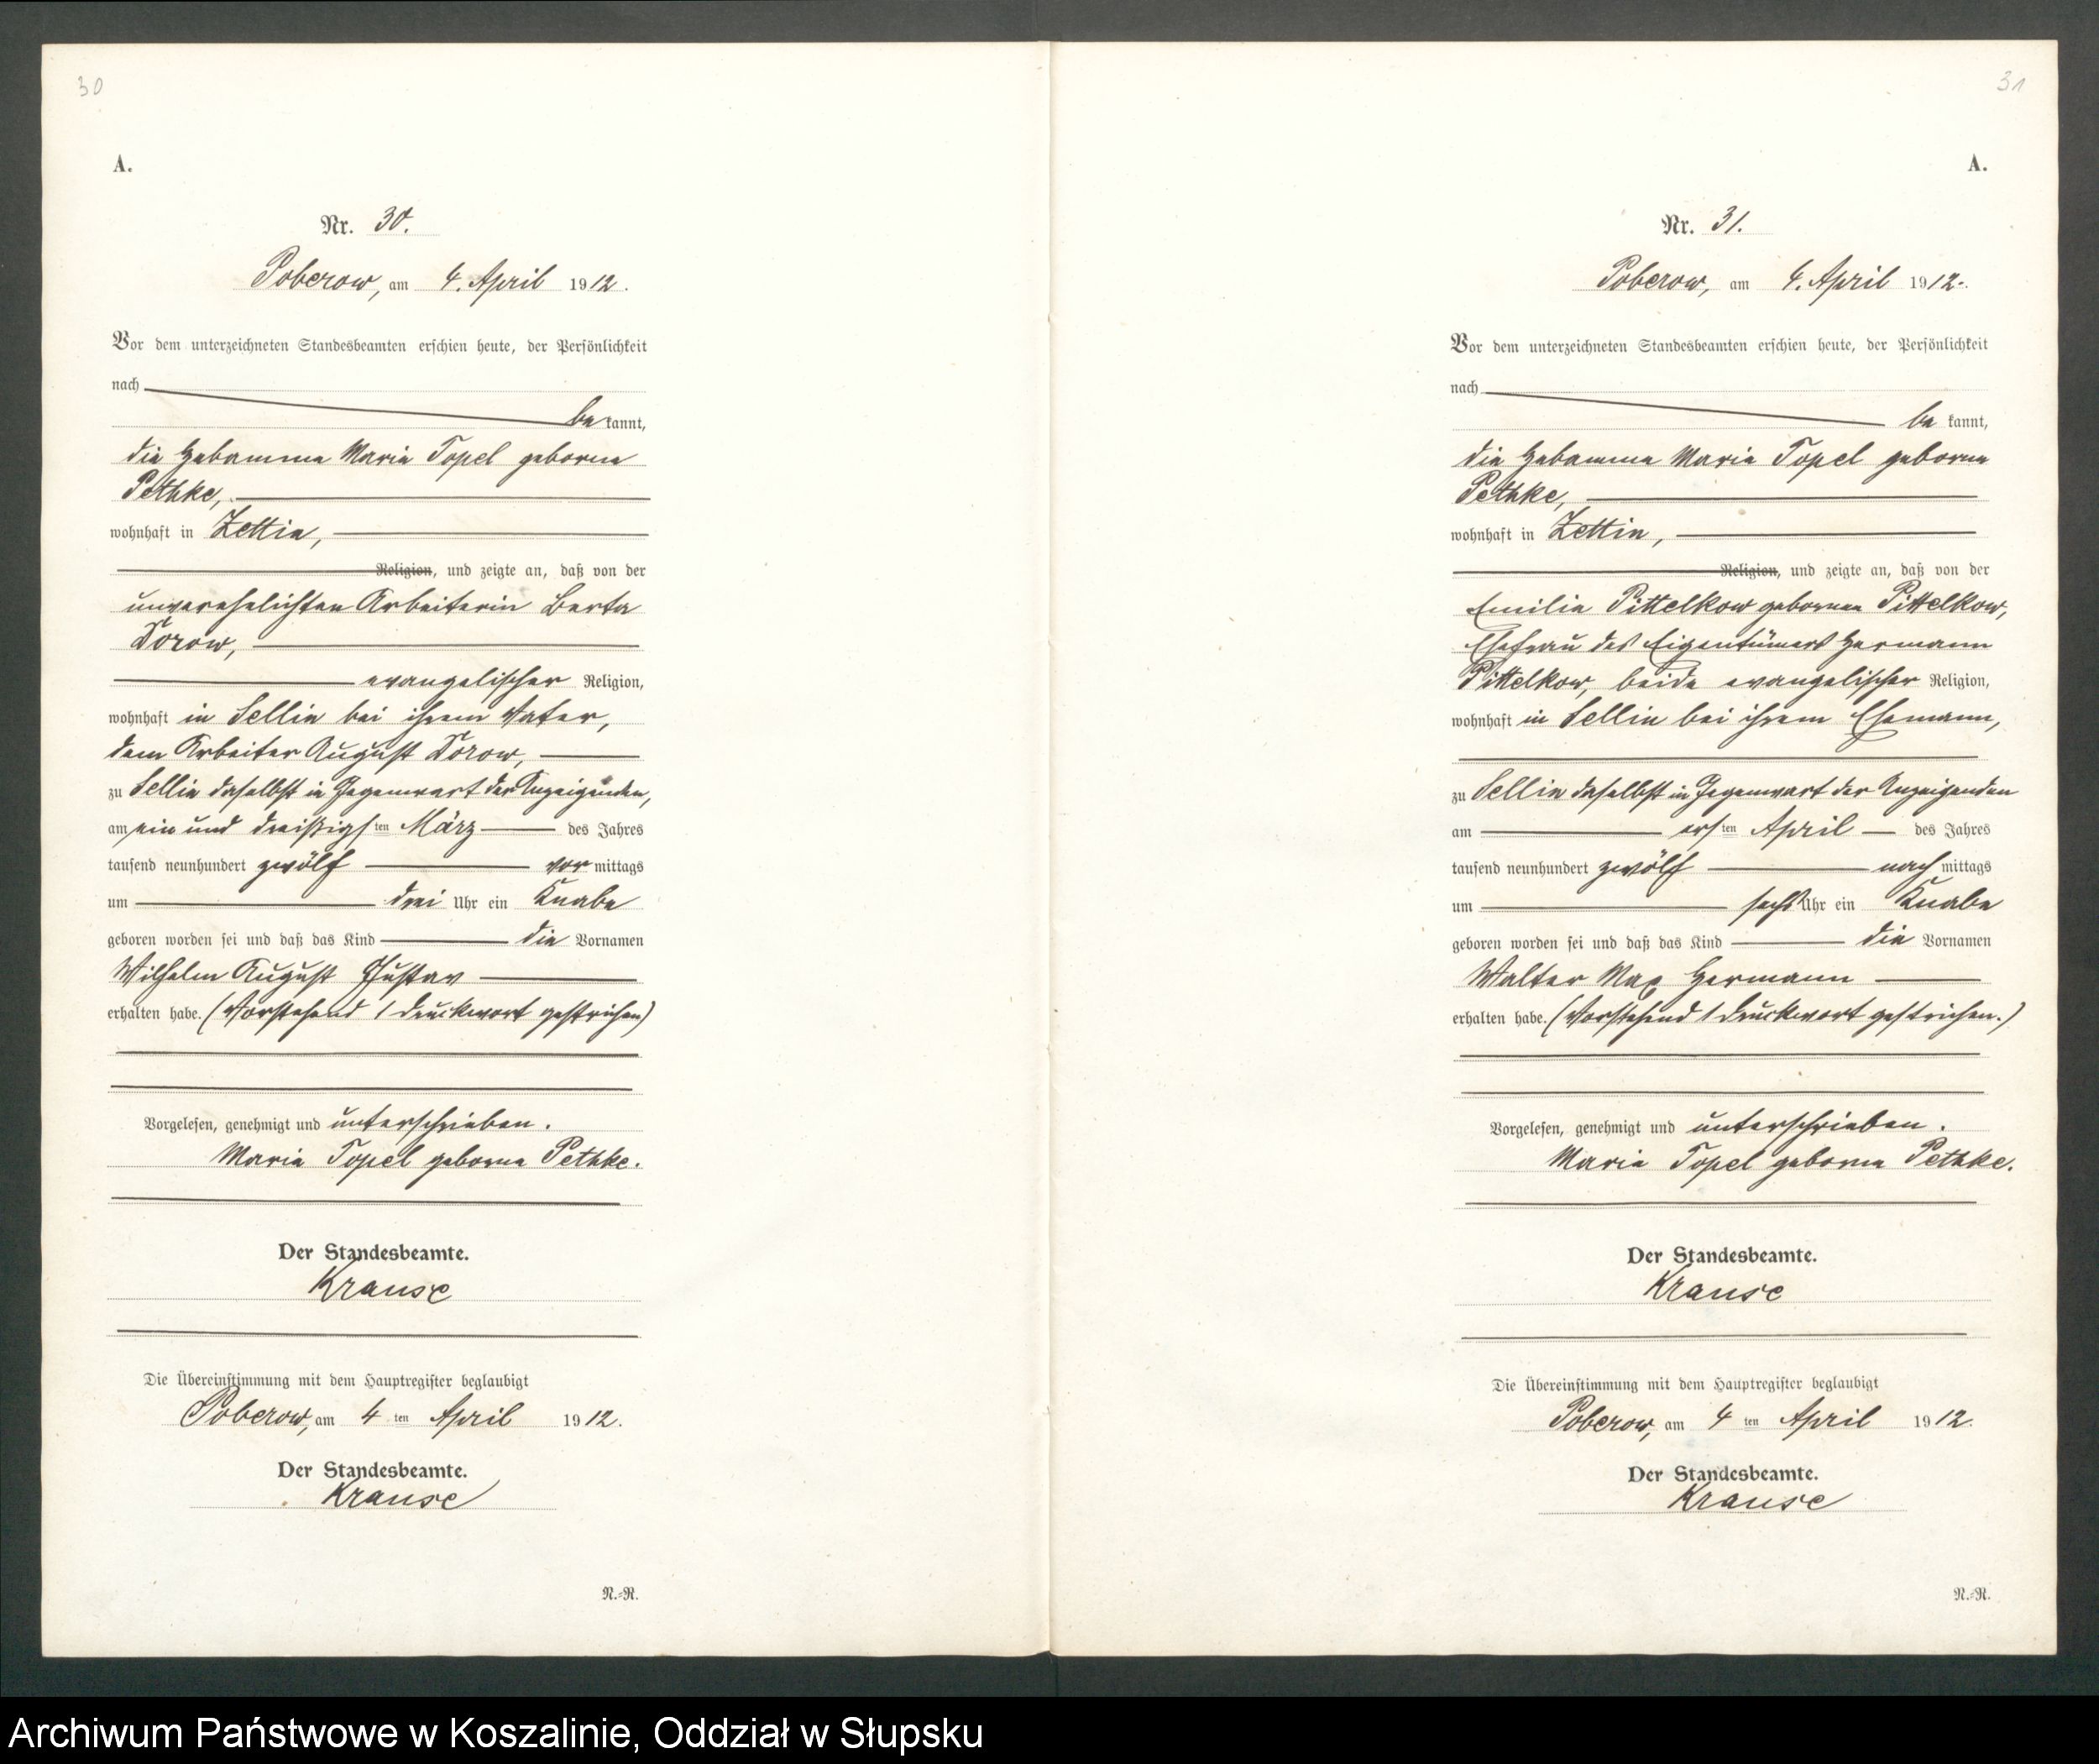 30
A.
Nr. 30.
Poberow, am 4. April 1912.
Vor dem unterzeichneten Standesbeamten erschien heute, der Persönlichkeit
nach
be kannt,
die Hebamme Maria Topel geborne
Pethke,
wohnhaft in Zettin,
Religion, und zeigte an, daß von der
unverehelichten Arbeiterin Berta
Dorow,
evangelischer Religion,
wohnhaft in Sellin bei ihrem Vater,
dem Arbeiter August Dorow,
zu Sellin daselbst in Gegenwart der Anzeigenden,
am ein und dreißigsten März des Jahres
tausend neunhundert zwölf vormittags
um drei Uhr ein Knabe
geboren worden sei und daß das Kind die Vornamen
Wilhelm August Gustav
erhalten habe. (Vorstehend 1 Druckwort gestrichen)
Vorgelesen, genehmigt und unterschrieben.
Maria Topel geborne Pethke.
Der Standesbeamte.
Krause
Die Übereinstimmung mit dem Hauptregister beglaubigt
Poberow, am 4 ten April 1912.
Der Standesbeamte.
Krause
N.=R.
31
A.
Nr. 31.
Poberow, am 4. April 1912.
Vor dem unterzeichneten Standesbeamten erschien heute, der Persönlichkeit
nach
be kannt,
die Hebamme Maria Topel geborne
Pethke,
wohnhaft in Zettin,
Religion, und zeigte an, daß von der
Emilie Pittelkow gebornen Pittelkow,
Ehefrau des Eigentümers Hermann
Pittelkow, beide evangelischer Religion,
wohnhaft in Sellin bei ihrem Ehemann,
zu Sellin daselbst in Gegenwart der Anzeigenden
am ersten April des Jahres
tausend neunhundert zwölf nachmittags
um sechs Uhr ein Knabe
geboren worden sei und daß das Kind die Vornamen
Walter Max Hermann
erhalten habe. (Vorstehend 1 Druckwort gestrichen.)
Vorgelesen, genehmigt und unterschrieben.
Maria Topel geborne Pethke.
Der Standesbeamte.
Krause
Die Übereinstimmung mit dem Hauptregister beglaubigt
Poberow, am 4 ten April 1912.
Der Standesbeamte.
Krause
N.=R.
Archiwum Państwowe w Koszalinie, Oddział w Słupsku